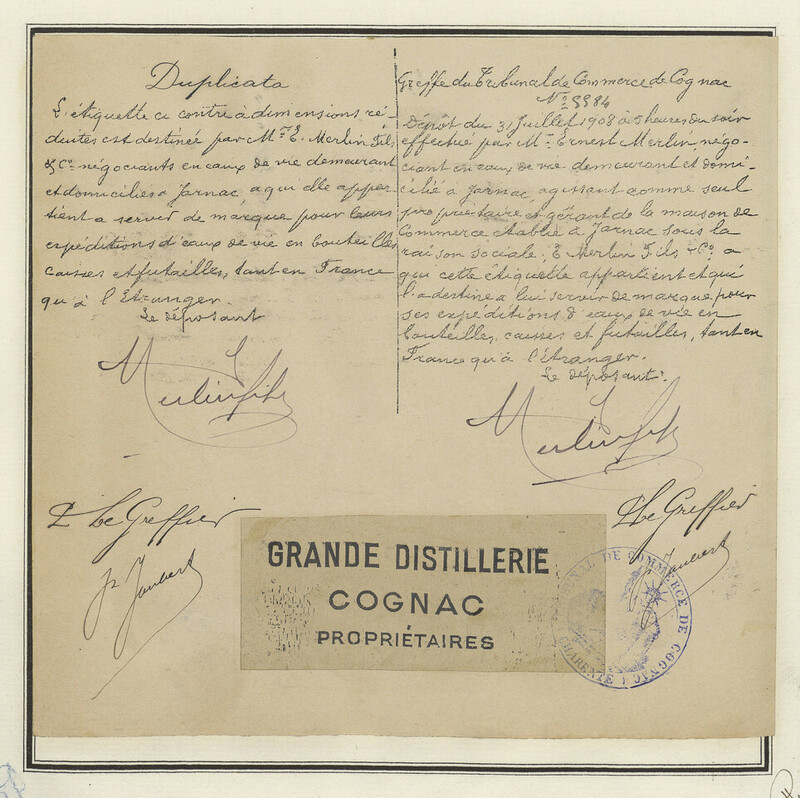 Duplicata
L'étiquette ci contre à dimensions ré-
duites est destinée par Mr E. Merlin Fils
& Co négociants en eaux de vie demeurant
et domiciliés à Jarnac, a qui elle appar-
tient a servir de marque pour leurs
expéditions d'eaux de vie en bouteilles
caisses et futailles, tant en France
qu'à l'Etranger.
Le déposant
Merlin Fils
Le Greffier
Greffe du Tribunal de Commerce de Cognac
No 5584
Dépôt du 31 Juillet 1908 à 5 heures du soir
effectué par Mr Ernest Merlin, négo-
ciant en eaux de vie demeurant et domi-
cilié à Jarnac, agissant comme seul
propriétaire et gérant de la maison de
Commerce établie à Jarnac sous la
raison sociale, E Merlin Fils & Co. a
qui cette étiquette appartient et qui
l'a destine a lui servir de marque pour
ses expéditions d'eaux de vie en
bouteilles, caisses et futailles, tant en
France qu'à l'Etranger.
Le déposant.
Merlin Fils
Le Greffier
GRANDE DISTILLERIE
COGNAC
PROPRIÉTAIRES
TRIBUNAL DE COMMERCE DE COGNAC
CHARENTE